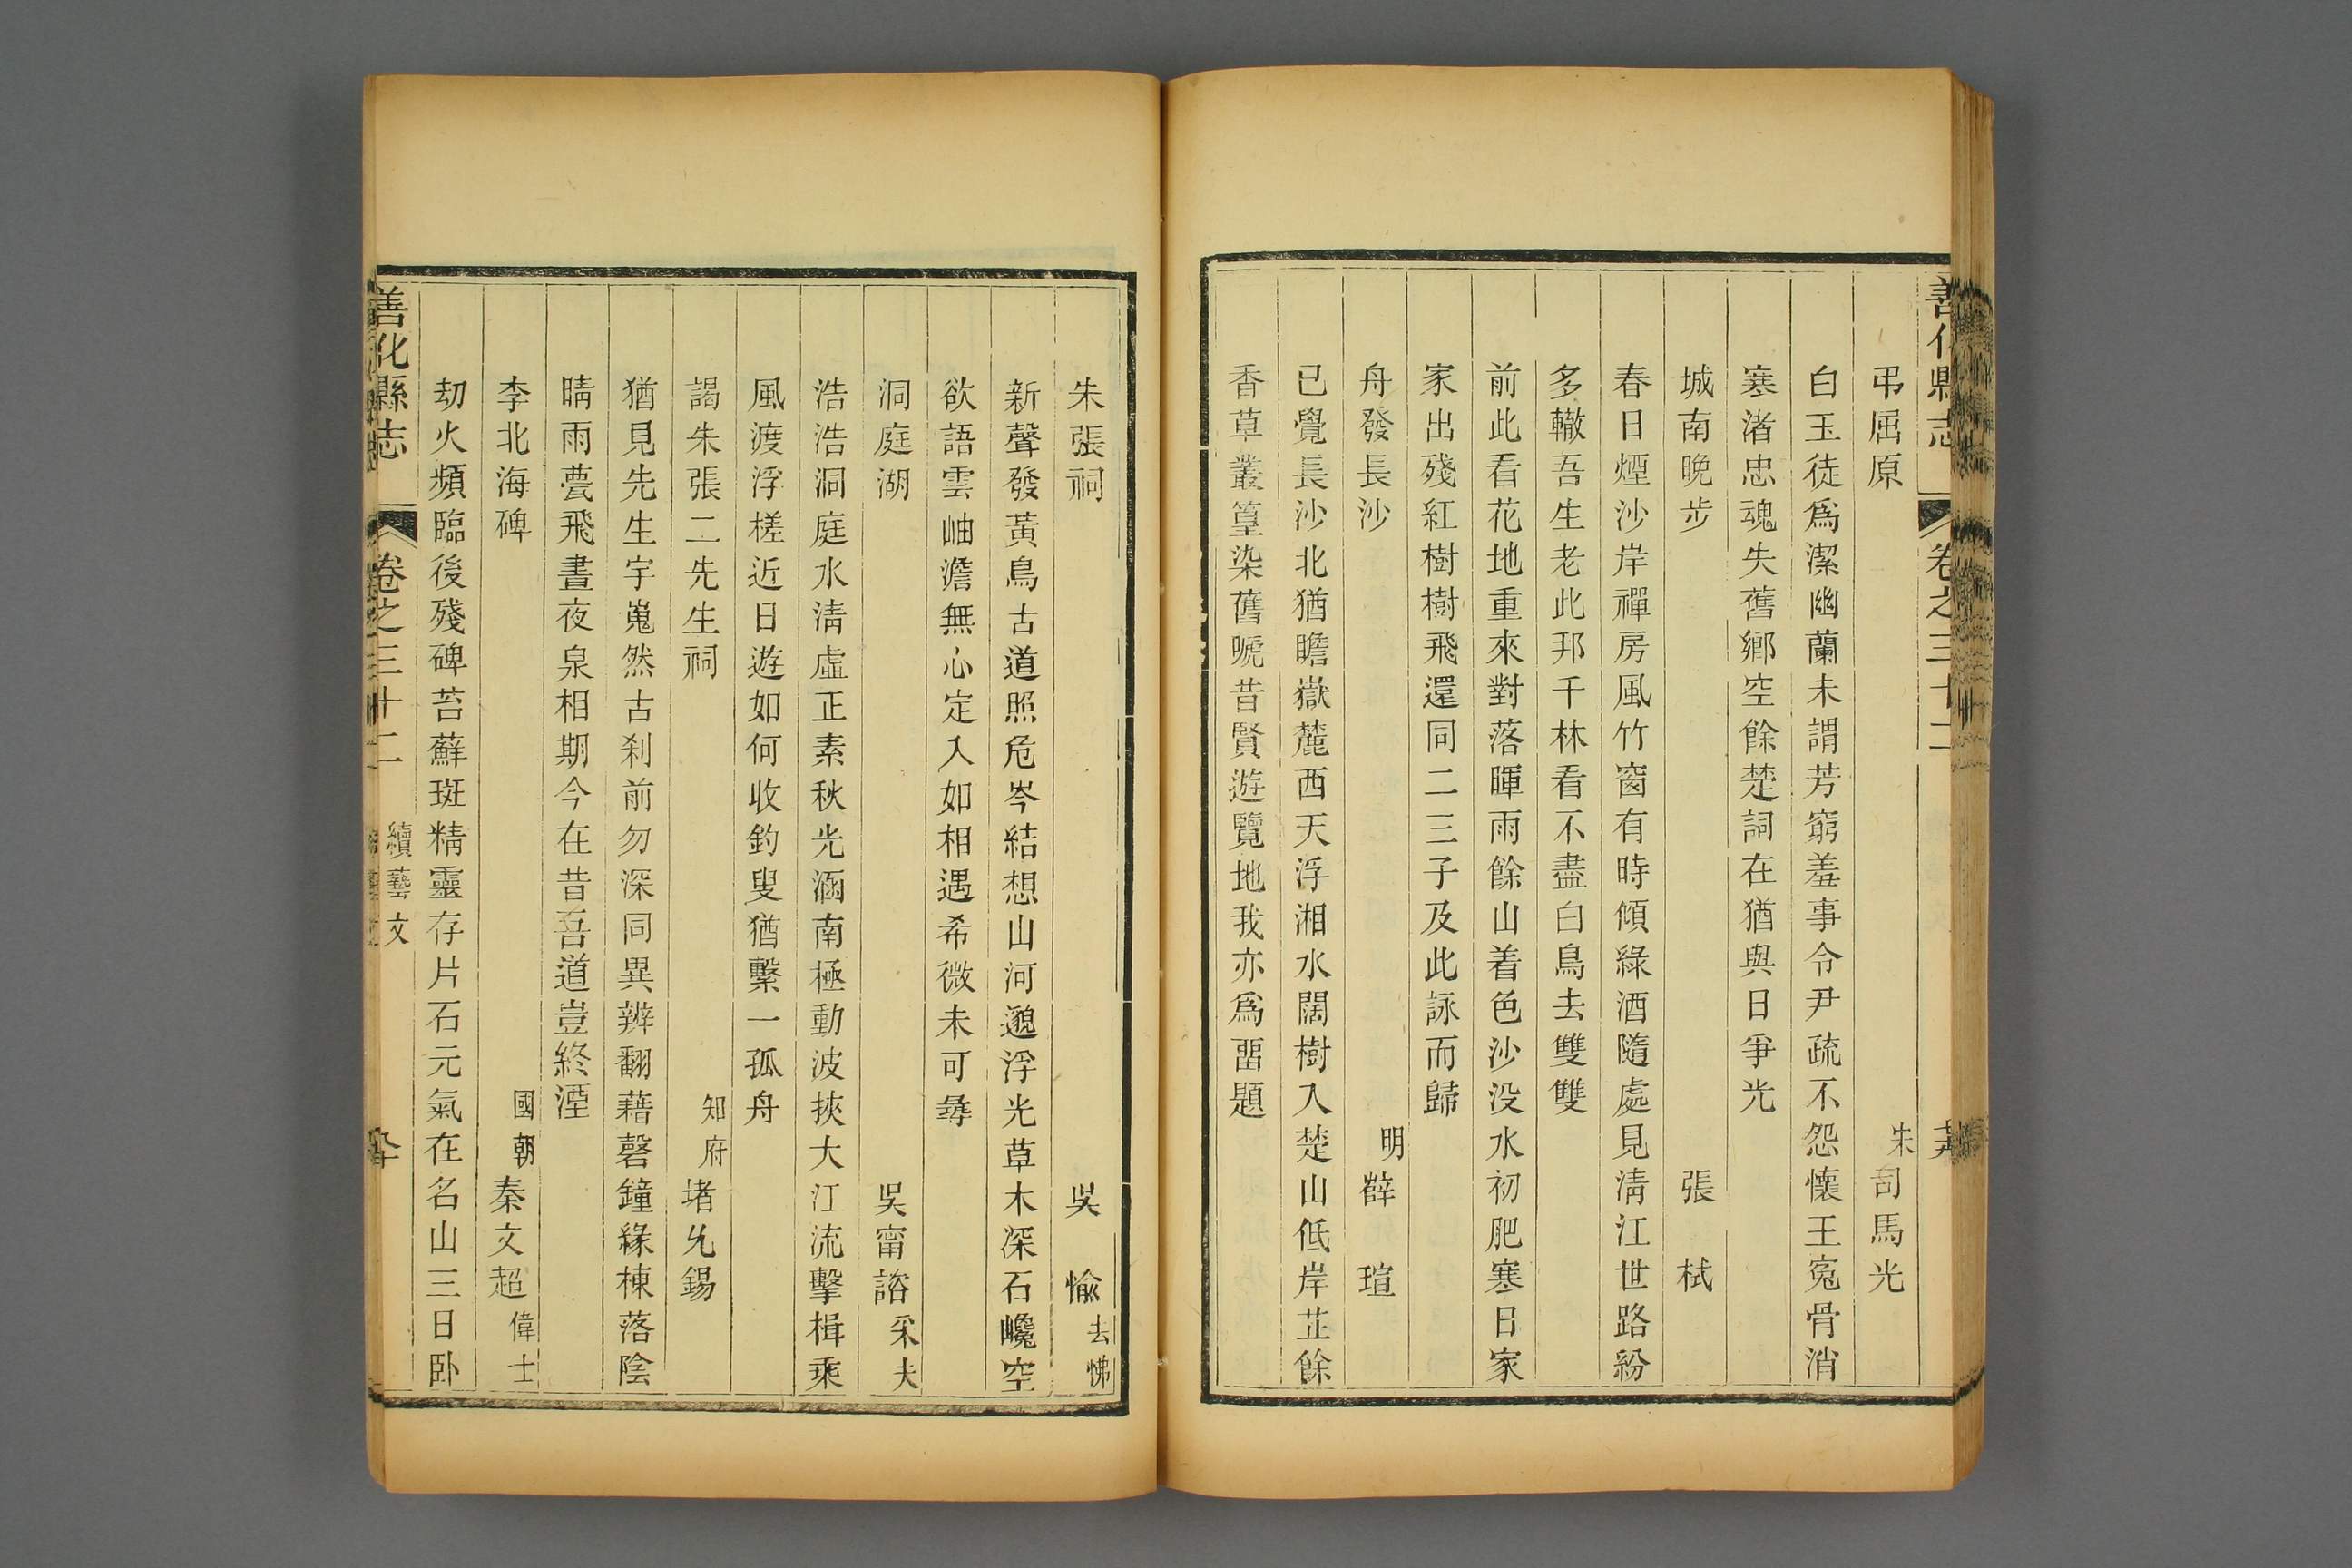 善化縣志 卷之三十二
弔屈原 宋司馬光
白玉徒爲潔幽蘭未謂芳窮羞事令尹疏不怨懷王寃骨消
寒渚忠魂失舊鄉空餘楚詞在猶與日爭光
城南晩步 張栻
春日煙沙岸禪房風竹窗有時傾綠酒隨處見淸江世路紛
多轍吾生老此邦千林看不盡白鳥去雙雙
前此看花地重來對落暉雨餘山着色沙没水初肥寒日家
家出殘紅樹樹飛還同二三子及此詠而歸
舟發長沙 明薛瑄
已覺長沙北猶瞻嶽麓西天浮湘水闊樹入楚山低岸芷餘
香草叢篁染舊嗁昔賢遊覽地我亦爲畱題
朱張祠 吳愉去怫
新聲發黃鳥古道照危岑結想山河邈浮光草木深石巉空
欲語雲岫澹無心定入如相遇希微未可尋
洞庭湖 吳甯諮采夫
浩浩洞庭水淸虛正素秋光涵南極動波挾大江流擊楫乘
風渡浮槎近日遊如何收釣叟猶繫一孤舟
謁朱張二先生祠 知府堵允錫
猶見先生宇嵬然古刹前勿深同異辨翻藉磬鐘緣棟落陰
晴雨甍飛晝夜泉相期今在昔吾道豈終湮
李北海碑 國朝秦文超偉士
劫火頻臨後殘碑苔蘚斑精靈存片石元氣在名山三日卧
善化縣志 卷之三十二 續藝文